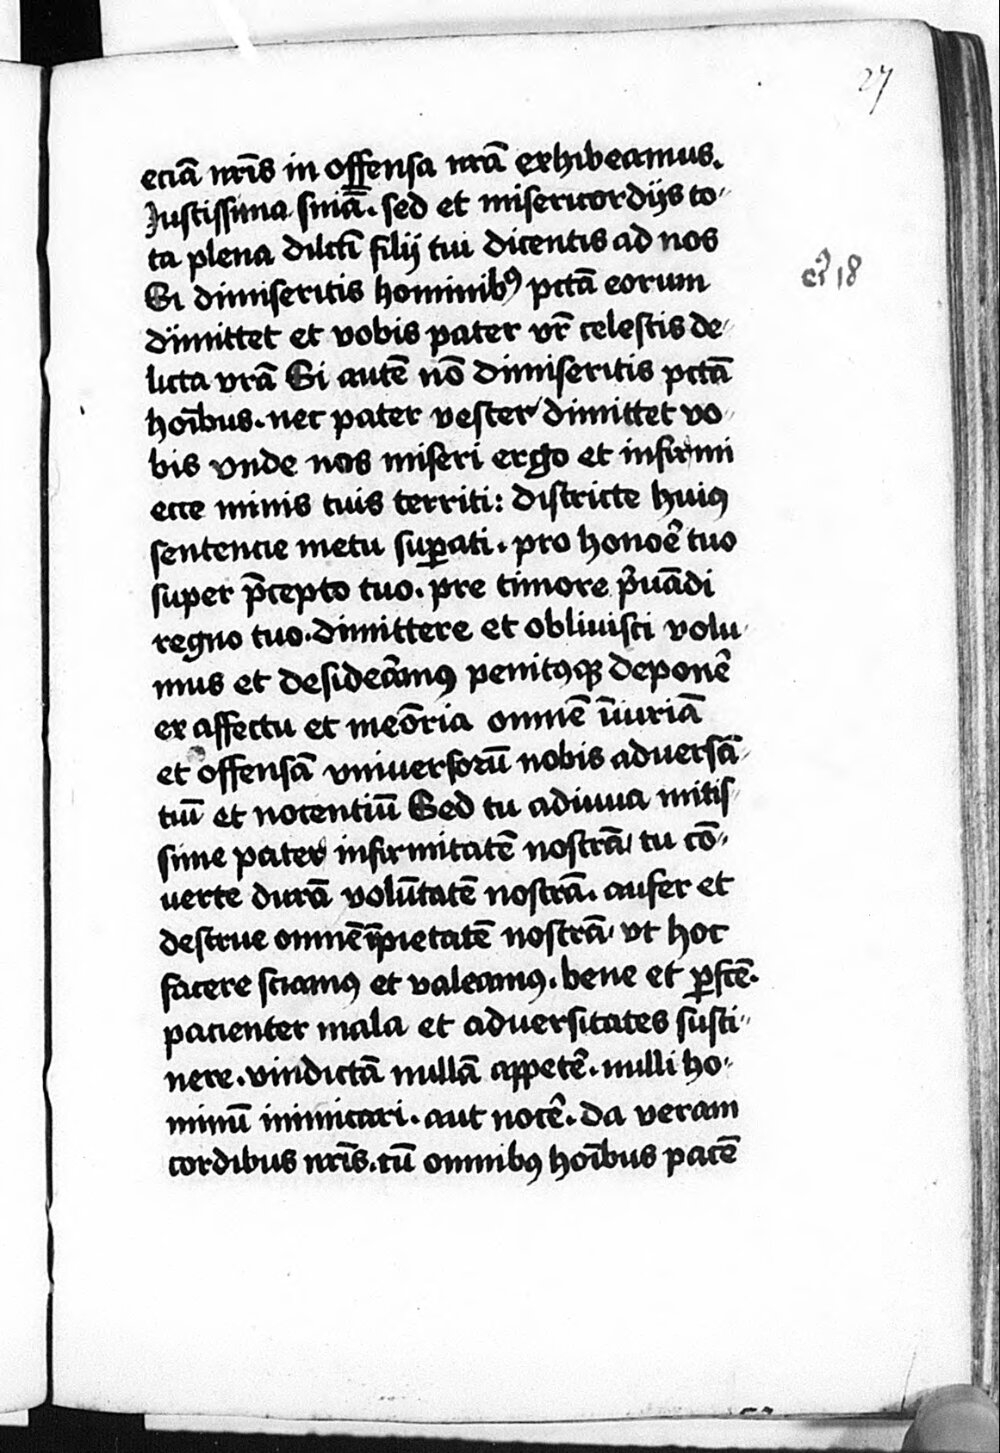 27
eciā nr̄is in offensa nrā exhibeamus.
Justissima snīa. sed et misericordijs to〃
ta plena dilcti filij tui dicentis ad nos
Si dimiseritis hominibꝰ pctā eorum
dimittet et vobis pater vr̄ celestis de〃
licta vrā Si autē nō dimiseritis pctā
hoībus. nec pater vester dimittet vo〃
bis vnde nos miseri ergo et infirmi
ecce minis tuis territi: districte huiꝰ
sentencie metu suꝑati. pro honoē tuo
super p̄cepto tuo. pre timore p̄uādi
regno tuo. dimittere et obliuisci volu〃
mus et desideāmꝰ penitꝰqꝫ deponē
ex affectu et meōria omnē īiuriā
et offensā vniuersorū nobis aduersā〃
tiū et nocentiū Sed tu adiuua mitis〃
sime pater infirmitatē nostrā/ tu cō〃
uerte durā volūtatē nostrā. aufer et
destrue omnē īpietatē nostrā/ vt hoc
facere sciamꝰ et valeamꝰ. bene et ꝑfcē.
pacienter mala et aduersitates susti〃
nere. vindictā nullā appetē. nulli ho〃
minū inimicari. aut nocē. da veram
cordibus nr̄is. cū omnibꝰ hoībus pacē